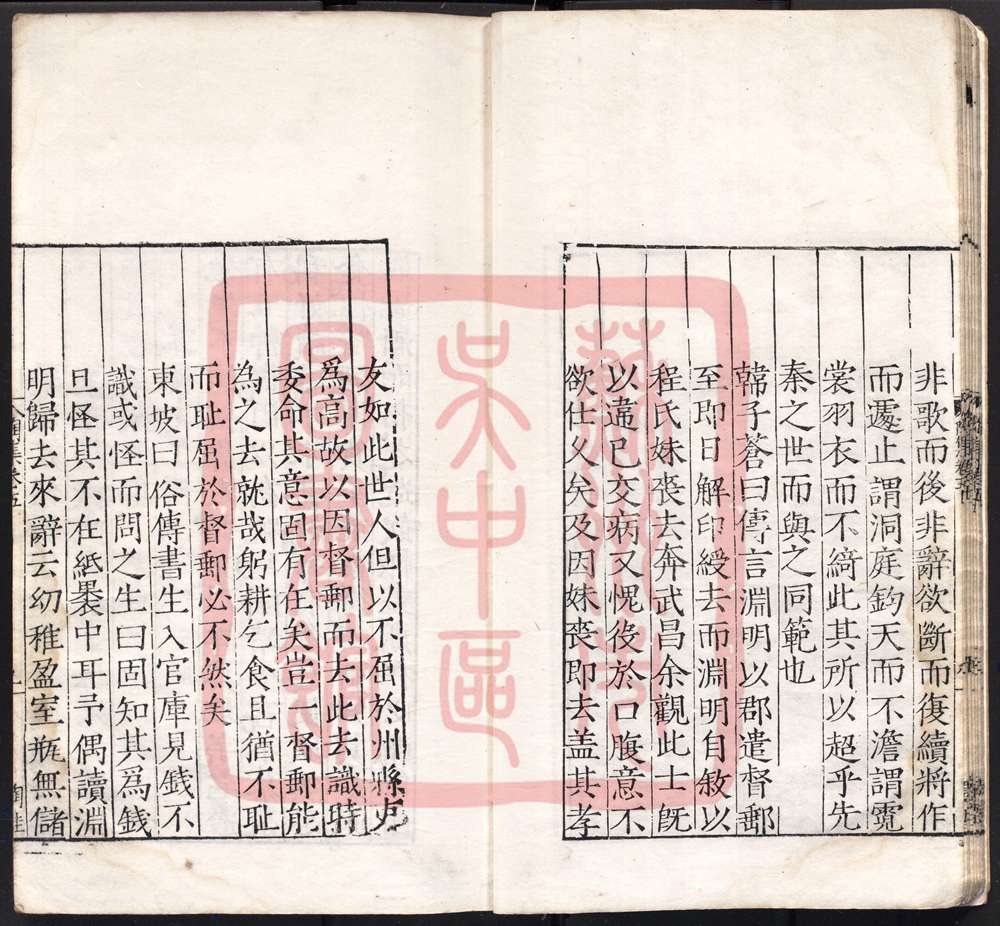 非歌而後非辭欲斷而復續將作
而遽止謂洞庭鈞天而不澹謂霓
裳羽衣而不綺此其所以超乎先
秦之世而與之同範也
韓子蒼曰傳言淵明以郡遣督郵
至即日解印綬去而淵明自敘以
程氏妹喪去奔武昌余觀此士旣
以違已交病又愧役於口腹意不
欲仕乆矣及因妹喪即去盖其孝
友如此世人但以不屈於州縣吏
爲高故以因督郵而去此去識時
委命其意固有在矣豈一督郵能
為之去就哉躬耕乞食且猶不耻
而耻屈於督郵必不然矣
東坡曰俗傳書生入官庫見錢不
識或怪而問之生曰固知其爲錢
旦怪其不在紙褁中耳予偶讀淵
明歸去來辭云幼稚盈室瓶無儲
吳中區